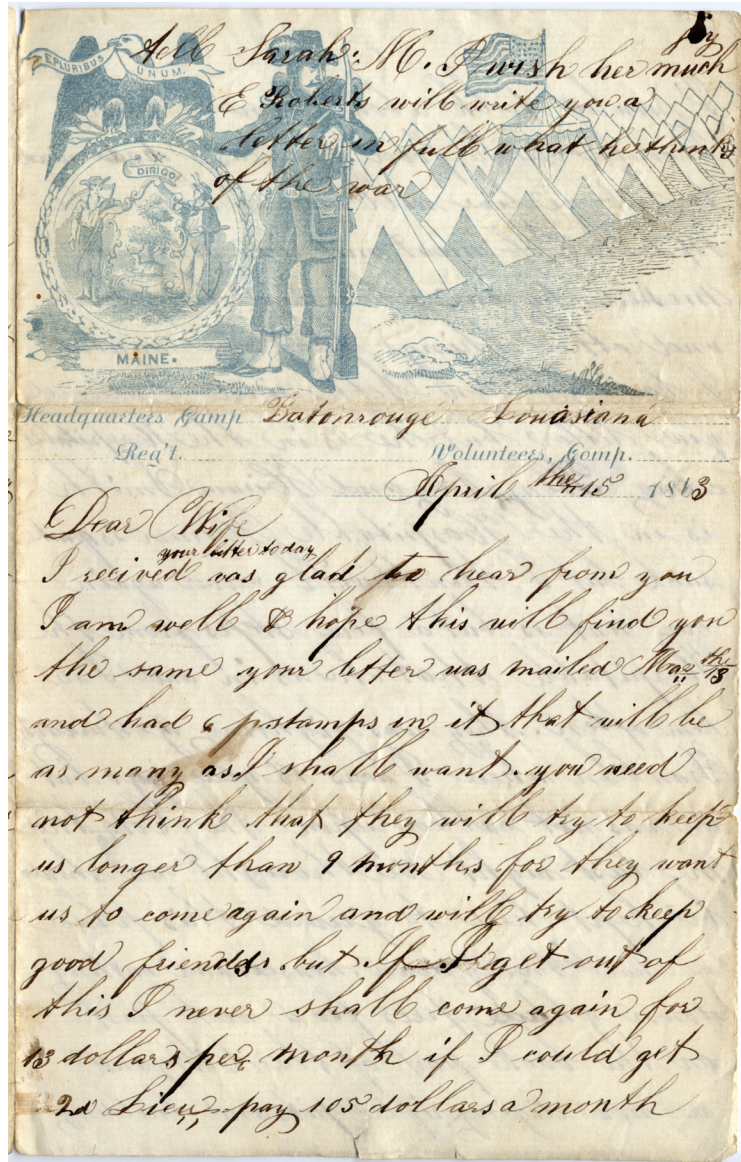 joy
tell Sarah: M. I wish her much
E Roberts will write you a
letter in full what he thinks
of the war
E PLURIBUS UNUM.
DIRIGO
MAINE.
Headquarters, Camp Batonrouge Louisiana
Reg't. Volunteers, Comp.
April the 15 1863
Dear Wife
your letter today
I recived was glad to hear from you
I am well & hope this will find you
the same your letter was mailed Mar 13th
and had 6 pstamps in it that will be
as many as I shall want. you need
not think that they will try to keep
us longer than 9 months for they want
us to come again and will try to keep
good friends but If I get out of
this I never shall come again for
13 dollars per month if I could get
2d Lieu,, pay 105 dollars a month